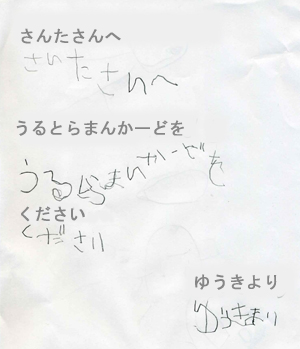 さんたさんへ
さいたさいへ
うるとらまんかーどを
うるとらまいかーどを
ください
くださり
ゆうきより
ゆうきまり